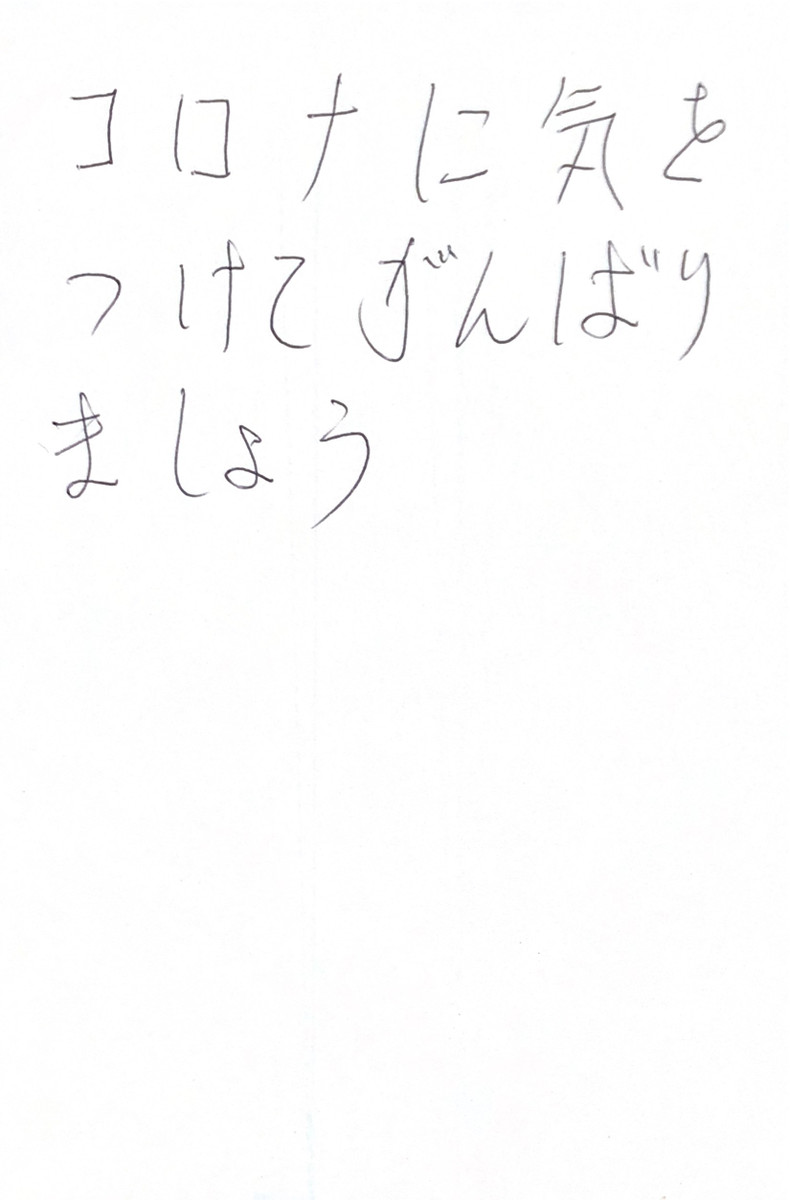 コロナに気を
つけてがんばり
ましょう